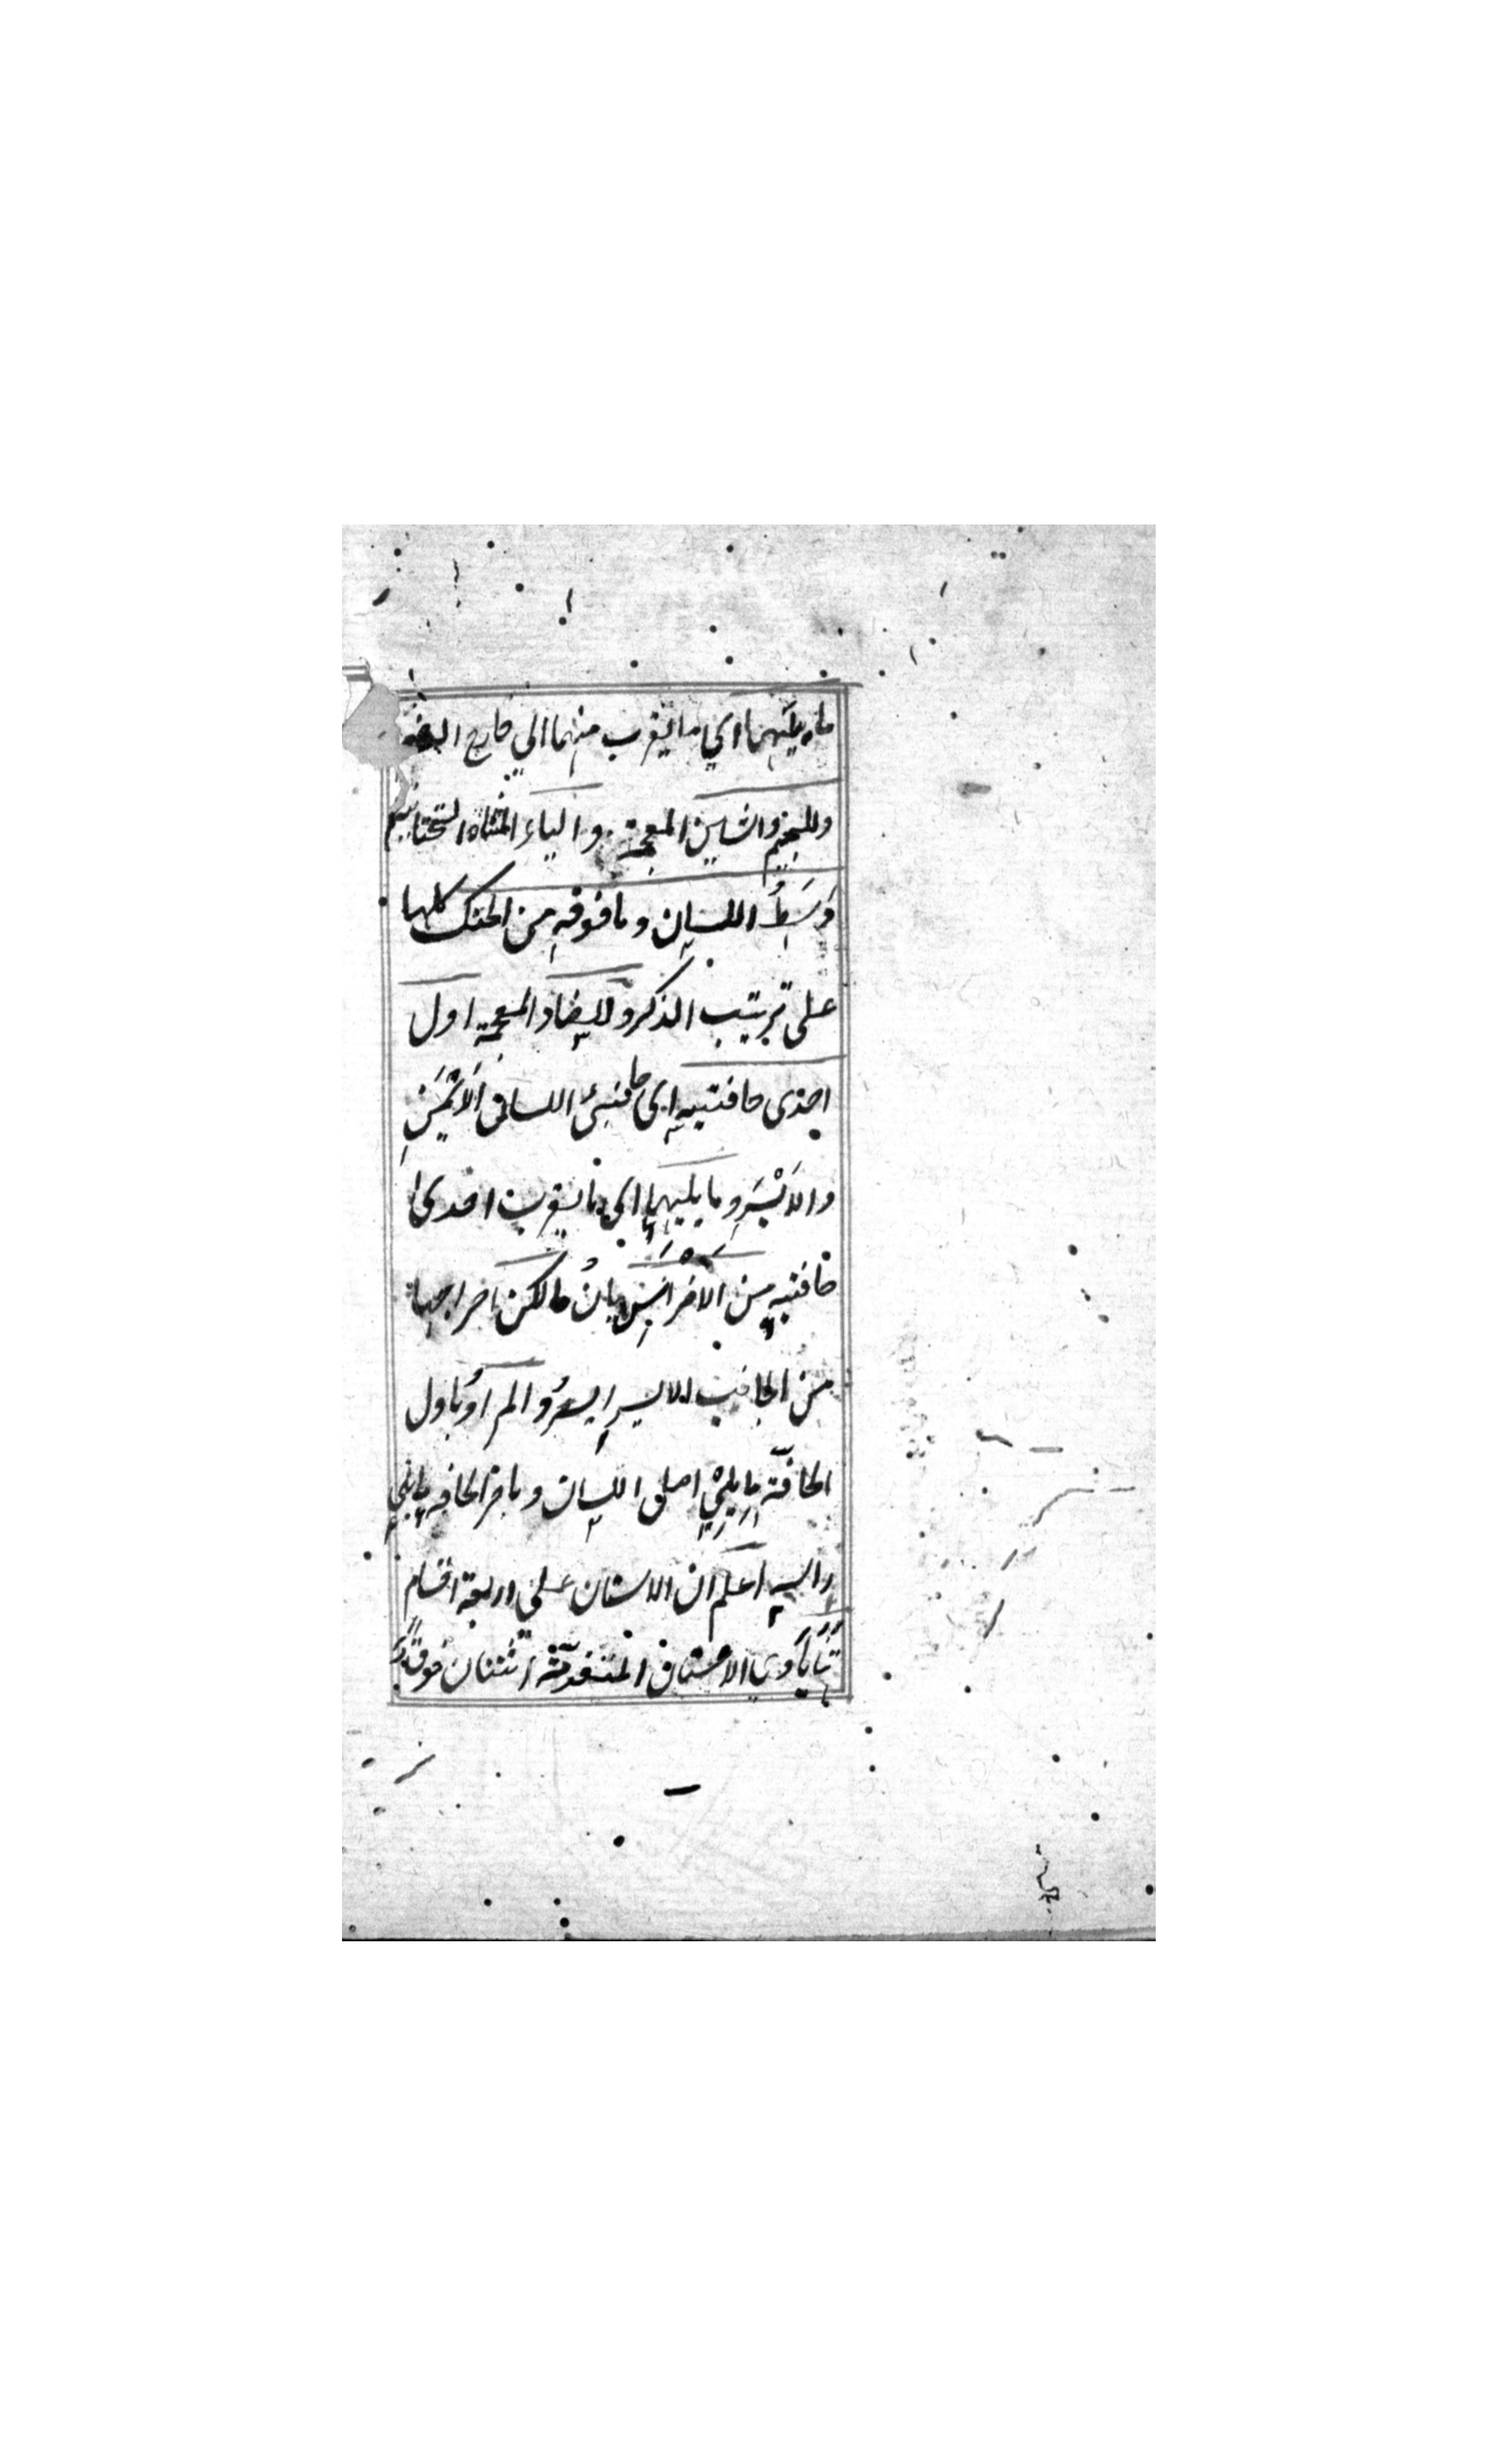 ما يليهما اي ما يقرب منهما الي خارج الفم
وللجيم والشين المعجمة والياء المثناة التحتانية
وَسَطُ اللسان وما فوقه من الحنك كلها
على ترتيب الذكر وللضاد المعجمة اول
احدى حافتيه اى حافتي اللسان الاَيْمَنِ
والاَيْسَرِ وما يليهما اي ما يقرب احدى
حافتيه من الاضراس لكن اخراجها
من الجانب الايسر ايسر والمراد باول
الحافة ما يلي اصل اللسان وباخر الحافة ما يلي
راسه اعلم ان الاسنان على اربعة اقسام
ثنايا وهي الاسنان المتقدمة اثنتان فوق